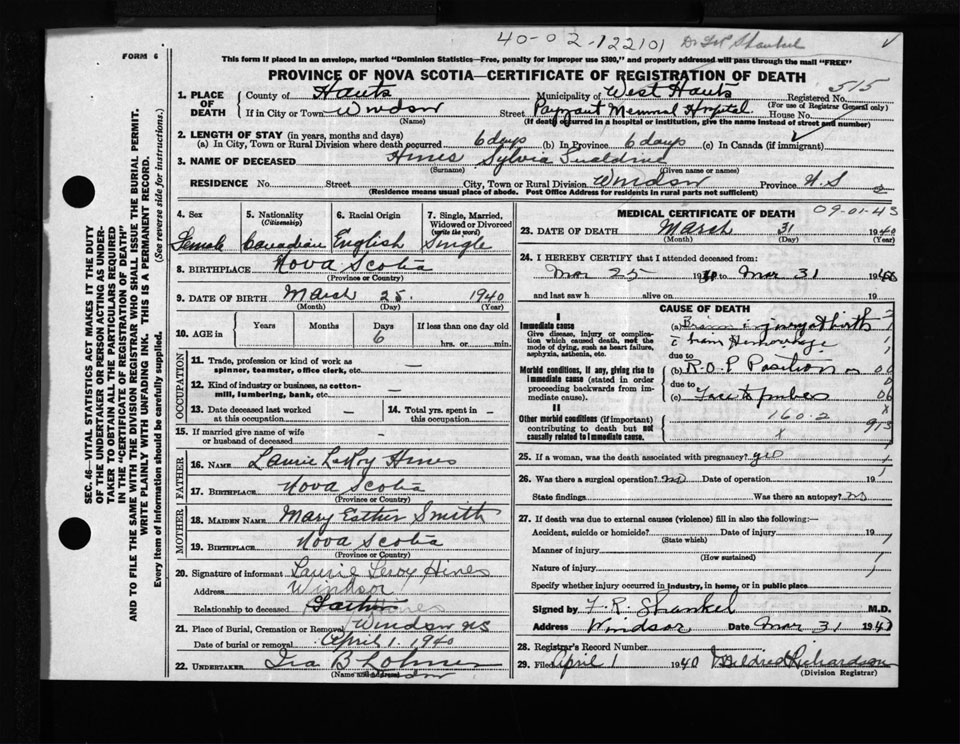 40-02-122101 Dr. F. R. Shankel
FORM 6
This form if placed in an envelope, marked "Dominion Statistics—Free, penalty for improper use $300," and properly addressed will pass through the mail "FREE"
PROVINCE OF NOVA SCOTIA—CERTIFICATE OF REGISTRATION OF DEATH
515
1. PLACE OF DEATH
County of Hants Municipality of West Hants Registered No.
(For use of Registrar General only)
If in City or Town Windsor Street Payzant Memorial Hospital House No.
(Name) (If death occurred in a hospital or institution, give the name instead of street and number)
2. LENGTH OF STAY (in years, months and days)
(a) In City, Town or Rural Division where death occurred 6 days (b) In Province 6 days (c) In Canada (if immigrant)
3. NAME OF DECEASED Hines Sylvia
(Surname) (Given name or names)
RESIDENCE No. Street City, Town or Rural Division Windsor Province N.S
(Residence means usual place of abode. Post Office Address for Residents in rural parts not sufficient)
4. Sex Female
5. Nationality (Citizenship) Canadian
6. Racial Origin English
7. Single, Married, Widowed or Divorced (write the word) Single
8. BIRTHPLACE Nova Scotia
(Province or Country)
9. DATE OF BIRTH March 25 1940
(Month) (Day) (Year)
10. AGE in Years Months Days 6 If less than one day old hrs. or min.
OCCUPATION
11. Trade, profession or kind of work as spinner, teamster, office clerk, etc. —
12. Kind of industry or business, as cotton-mill, lumbering, bank, etc. —
13. Date deceased last worked at this occupation —
14. Total yrs. spent in this occupation —
15. If married give name of wife or husband of deceased
FATHER
16. NAME Laurie LeRoy Hines
17. BIRTHPLACE Nova Scotia
(Province or Country)
MOTHER
18. MAIDEN NAME Mary Esther Smith
19. BIRTHPLACE Nova Scotia
(Province or Country)
20. Signature of informant Laurie Leroy Hines
Address Windsor
Relationship to deceased Father
21. Place of Burial, Cremation or Removal Windsor NS
Date of burial or removal April 1 1940
22. UNDERTAKER Ira B Lohnes
(Name and Address) Windsor
MEDICAL CERTIFICATE OF DEATH 09-01-43
23. DATE OF DEATH March 31 1940
(Month) (Day) (Year)
24. I HEREBY CERTIFY that I attended deceased from:
Mar 25 1940 to Mar 31 1940
and last saw h alive on 19
CAUSE OF DEATH
I
Immediate cause
Give disease, injury or complication which caused death, not the mode of dying, such as heart failure, asphyxia, asthenia, etc.
(a) Brain injury at birth
c Hemorrhage
due to
Morbid conditions, if any, giving rise to immediate cause (stated in order proceeding backwards from immediate cause).
(b) R.O.P Position
due to
(c) Face to pubes
II
Other morbid conditions (if important) contributing to death but not causally related to immediate cause.
160.2
x
25. If a woman, was the death associated with pregnancy?
26. Was there a surgical operation? no Date of operation 19
State findings Was there an autopsy? no
27. If death was due to external causes (violence) fill in also the following:—
Accident, suicide or homicide? Date of injury 19
(State which)
Manner of injury
(How sustained)
Nature of injury
Specify whether injury occurred in industry, in home, or in public place
Signed by F. R. Shankel M.D.
Address Windsor Date Mar 31 1940
28. Registrar's Record Number
29. Filed April 1 1940 Mildred Richardson
(Division Registrar)
SEC. 46—VITAL STATISTICS ACT MAKES IT THE DUTY
OF THE UNDERTAKER OR PERSON ACTING AS UNDER-
TAKER TO OBTAIN ALL THE PARTICULARS REQUIRED
IN THE "CERTIFICATE OF REGISTRATION OF DEATH"
AND TO FILE THE SAME WITH THE DIVISION REGISTRAR WHO SHALL ISSUE THE BURIAL PERMIT.
WRITE PLAINLY WITH UNFADING INK. THIS IS A PERMANENT RECORD.
Every item of information should be carefully supplied. (See reverse side for instructions.)